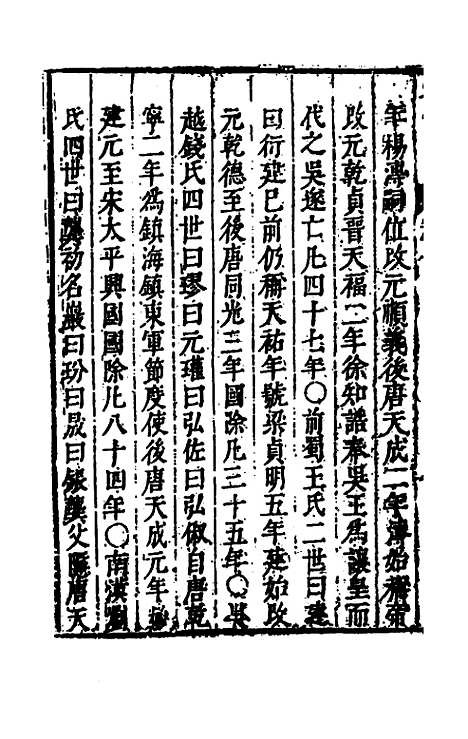 年楊溥嗣位改元順義後唐天成二年溥始稱帝
改元乾貞晉天福二年徐知誥奉吳王為讓皇而
代之吳遂亡凡四十七年〇前蜀王氏二世曰建
曰衍建已前仍稱天祐年號梁貞明五年建始改
元乾德至後唐同光三年國除凡三十五年〇吳
越錢氏四世曰鏐曰元瓘曰弘佐曰弘俶自唐乾
寧二年為鎮海鎮東軍節度使後唐天成元年
建元至宋太平興國國除凡八十四年〇南漢劉
氏四世曰龑初名巖曰玢曰晟曰鋹龑父唐天